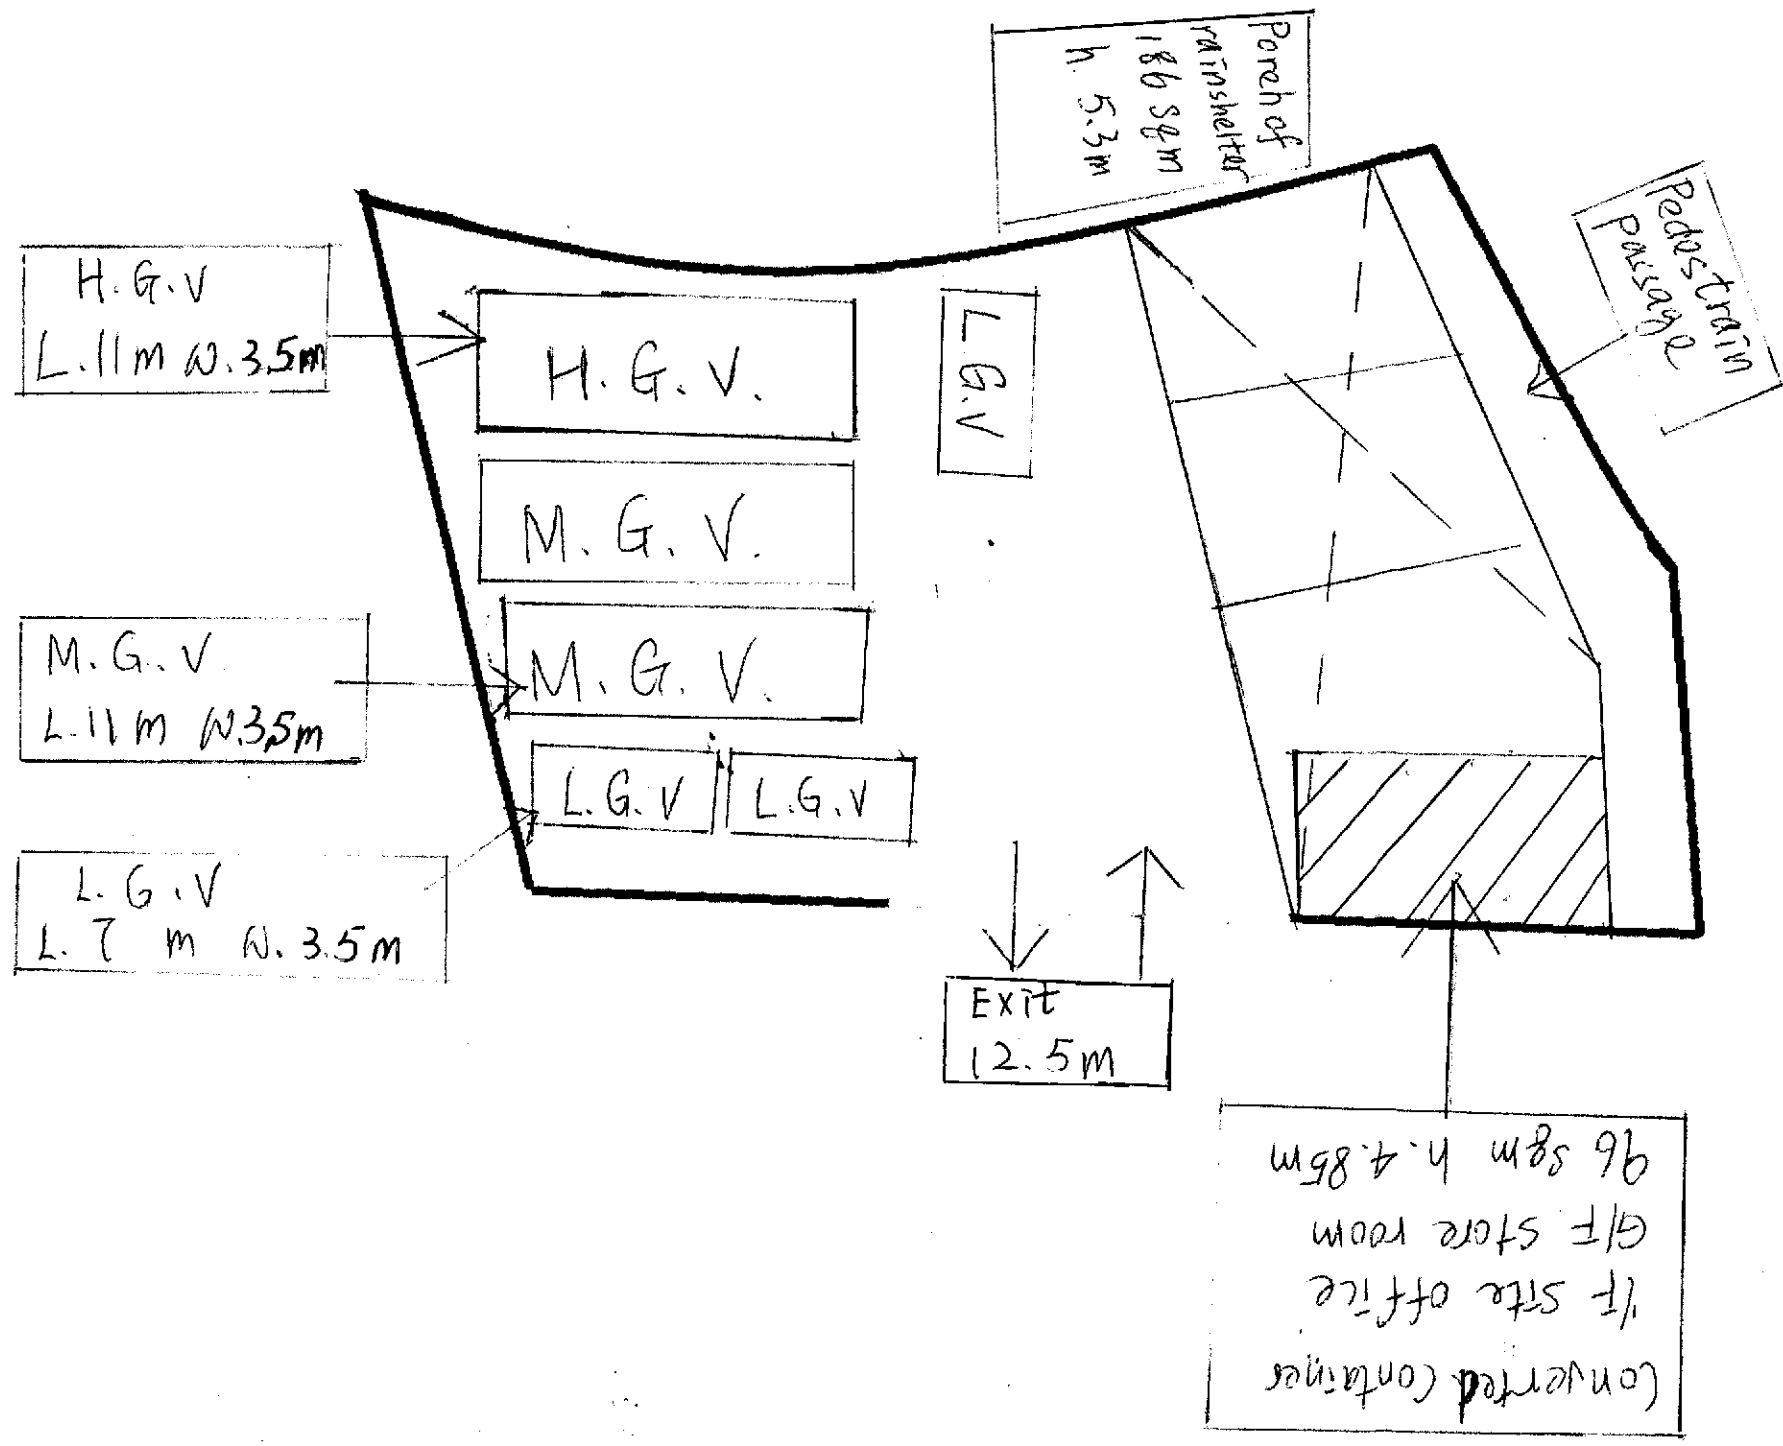 Porch of
rainshelter
186 sqm
h. 5.3m
Pedestrain
passage
H.G.V
L.11m W.3.5m
H.G.V.
L.G.V
M.G.V.
M.G.V
L.11m W.3.5m
M.G.V.
L.G.V
L.G.V
L.G.V
L.7 m W.3.5m
Exit
12.5m
Converted Container
1/F site office
G/F store room
96 sqm h.4.85m